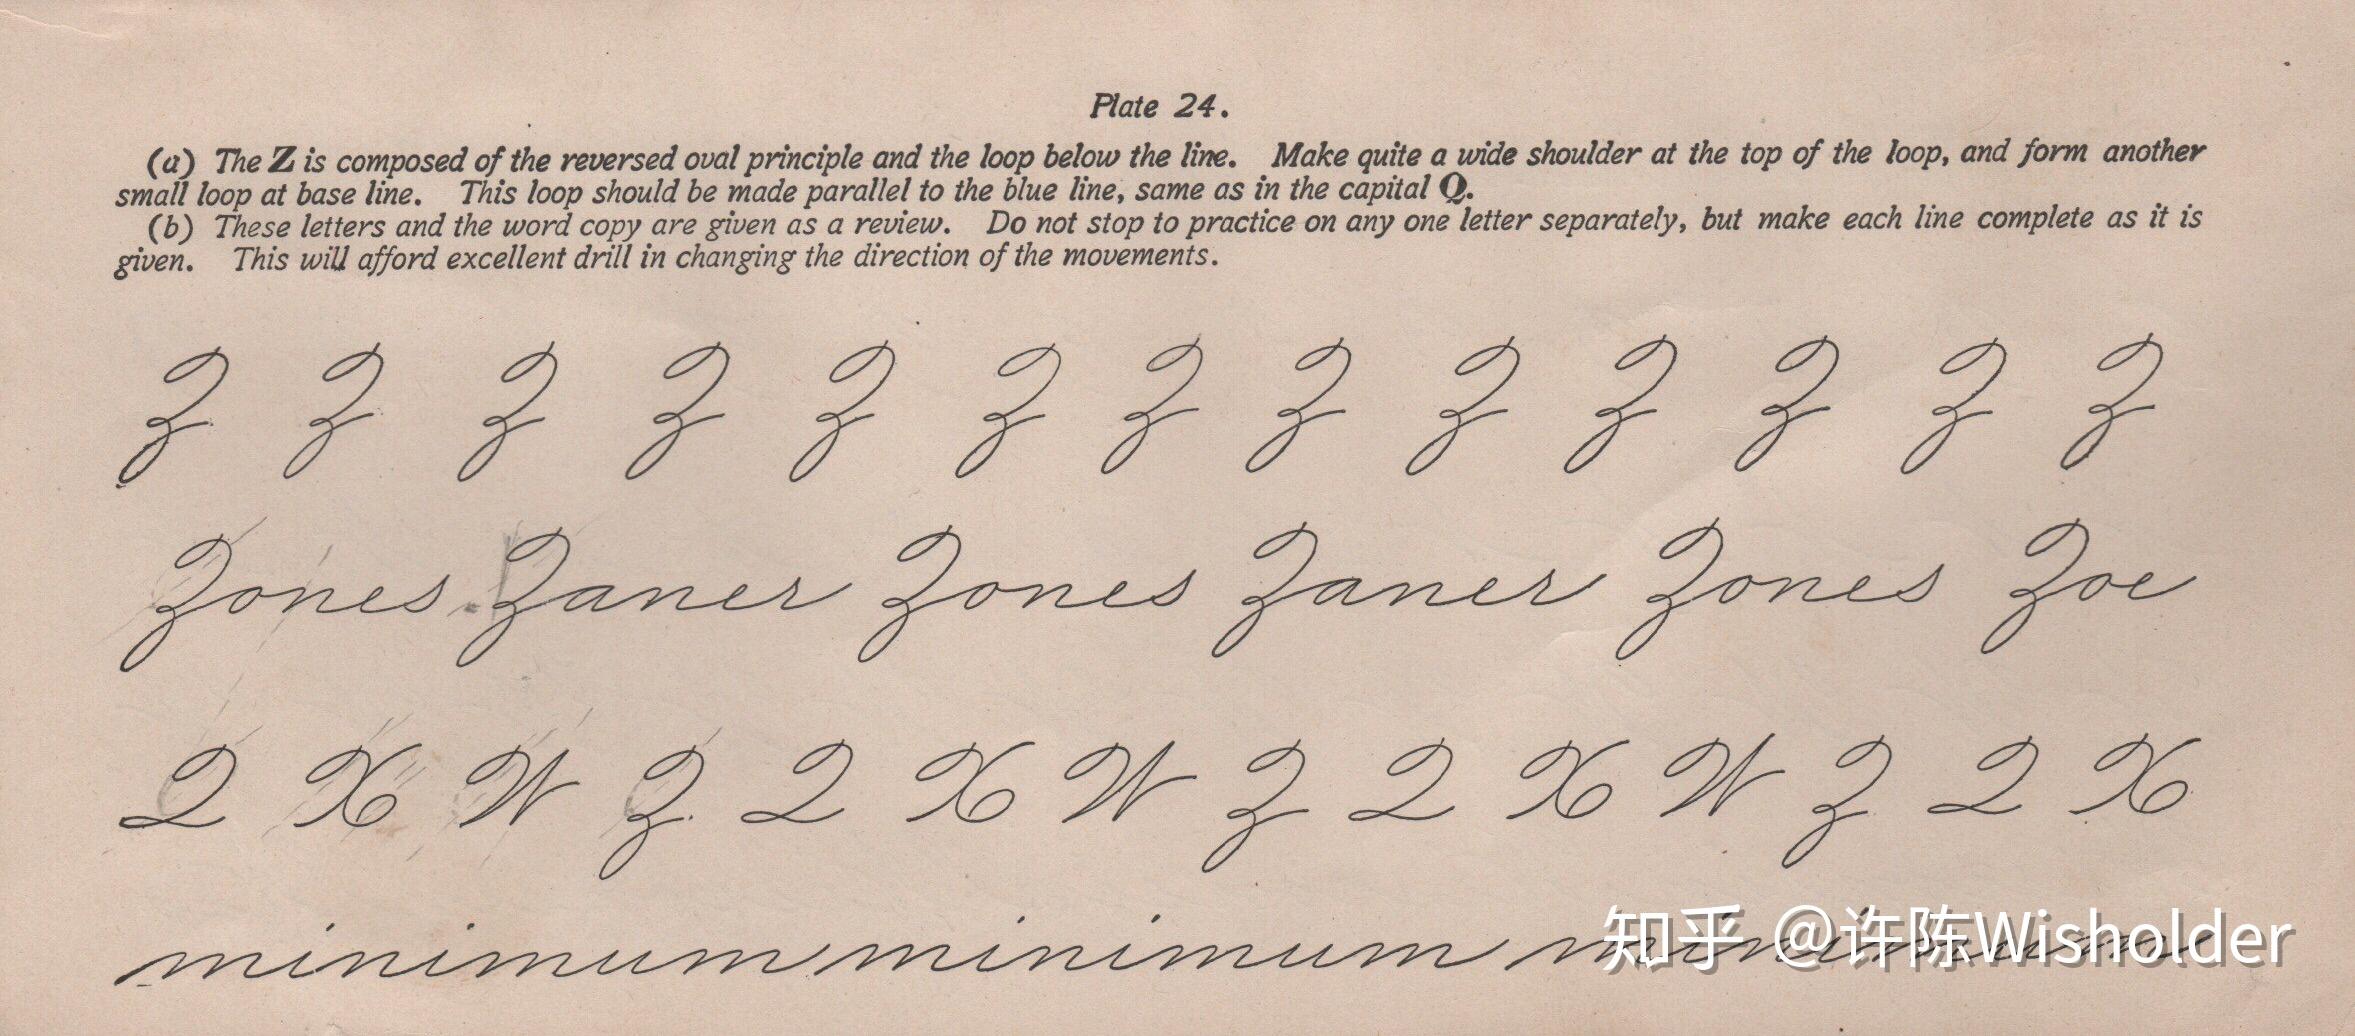 Plate 24.
(a) The Z is composed of the reversed oval principle and the loop below the line. Make quite a wide shoulder at the top of the loop, and form another
small loop at base line. This loop should be made parallel to the blue line, same as in the capital Q.
(b) These letters and the word copy are given as a review. Do not stop to practice on any one letter separately, but make each line complete as it is
given. This will afford excellent drill in changing the direction of the movements.
Z Z Z Z Z Z Z Z Z Z Z Z Z
Zones Zaner Zones Zaner Zones Zoe
Q X W Z Q X W Z Q X W Z Q X
minimum minimum minimum
知乎 @许陈Wisholder